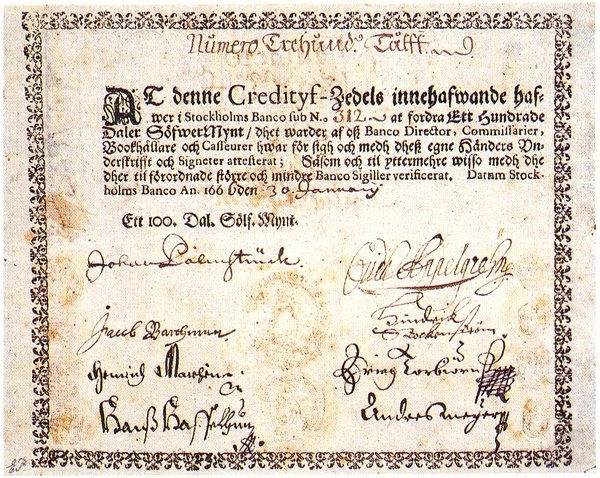 Numero Trehund: Tålff
AT denne Credityf-Zedels innehafwande haf-
wer i Stockholms Banco sub N.o 312. at fordra Ett Hundrade
Daler SölfwerMynt / dhet warder af oß Banco Director, Commissarier,
Bookhållare och Casseurer hwar för sigh och medh dheß egne Händers Vn-
derskrifft och Signeter attesterat; Såsom och til yttermehre wisso medh dhe
dher til förordnade större och mindre Banco Sigiller verificerat. Datum Stock-
holms Banco An. 166 6 den 30. January
Ett 100. Dal. Sölf. Mynt.
Johan Palmstruck.
Jacob Barchman
Hindrik
Stockenström
Hanß Hasselhun
Andres meijer